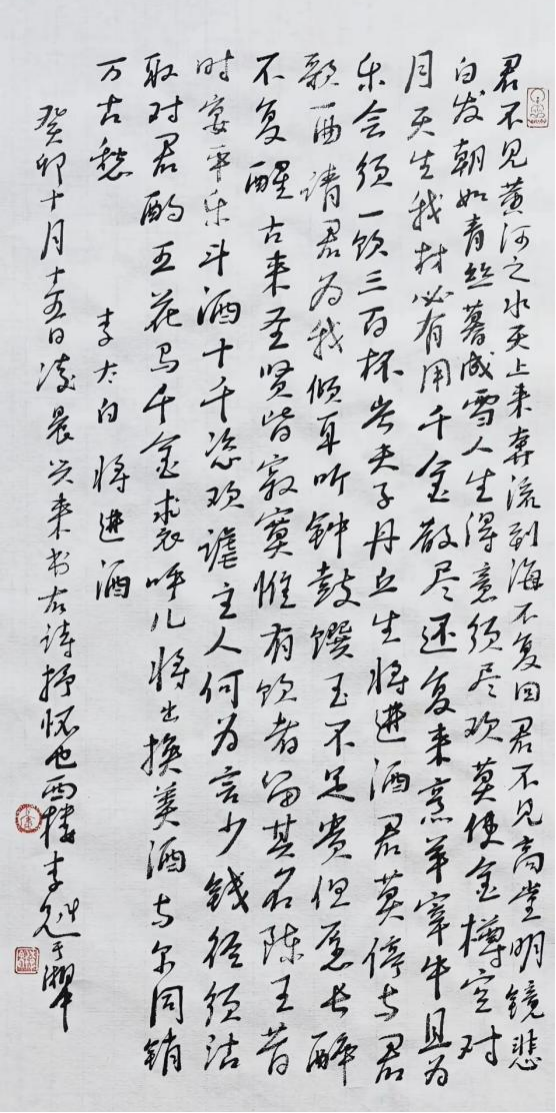 君不见黄河之水天上来奔流到海不复回君不见高堂明镜悲
白发朝如青丝暮成雪人生得意须尽欢莫使金樽空对
月天生我材必有用千金散尽还复来烹羊宰牛且为
乐会须一饮三百杯岑夫子丹丘生将进酒君莫停与君
歌一曲请君为我倾耳听钟鼓馔玉不足贵但愿长醉
不复醒古来圣贤皆寂寞惟有饮者留其名陈王昔
时宴平乐斗酒十千恣欢谑主人何为言少钱径须沽
取对君酌五花马千金裘呼儿将出换美酒与尔同销
万古愁 李太白 将进酒
癸卯十月十五日凌晨兴来书右诗抒怀也西楼李